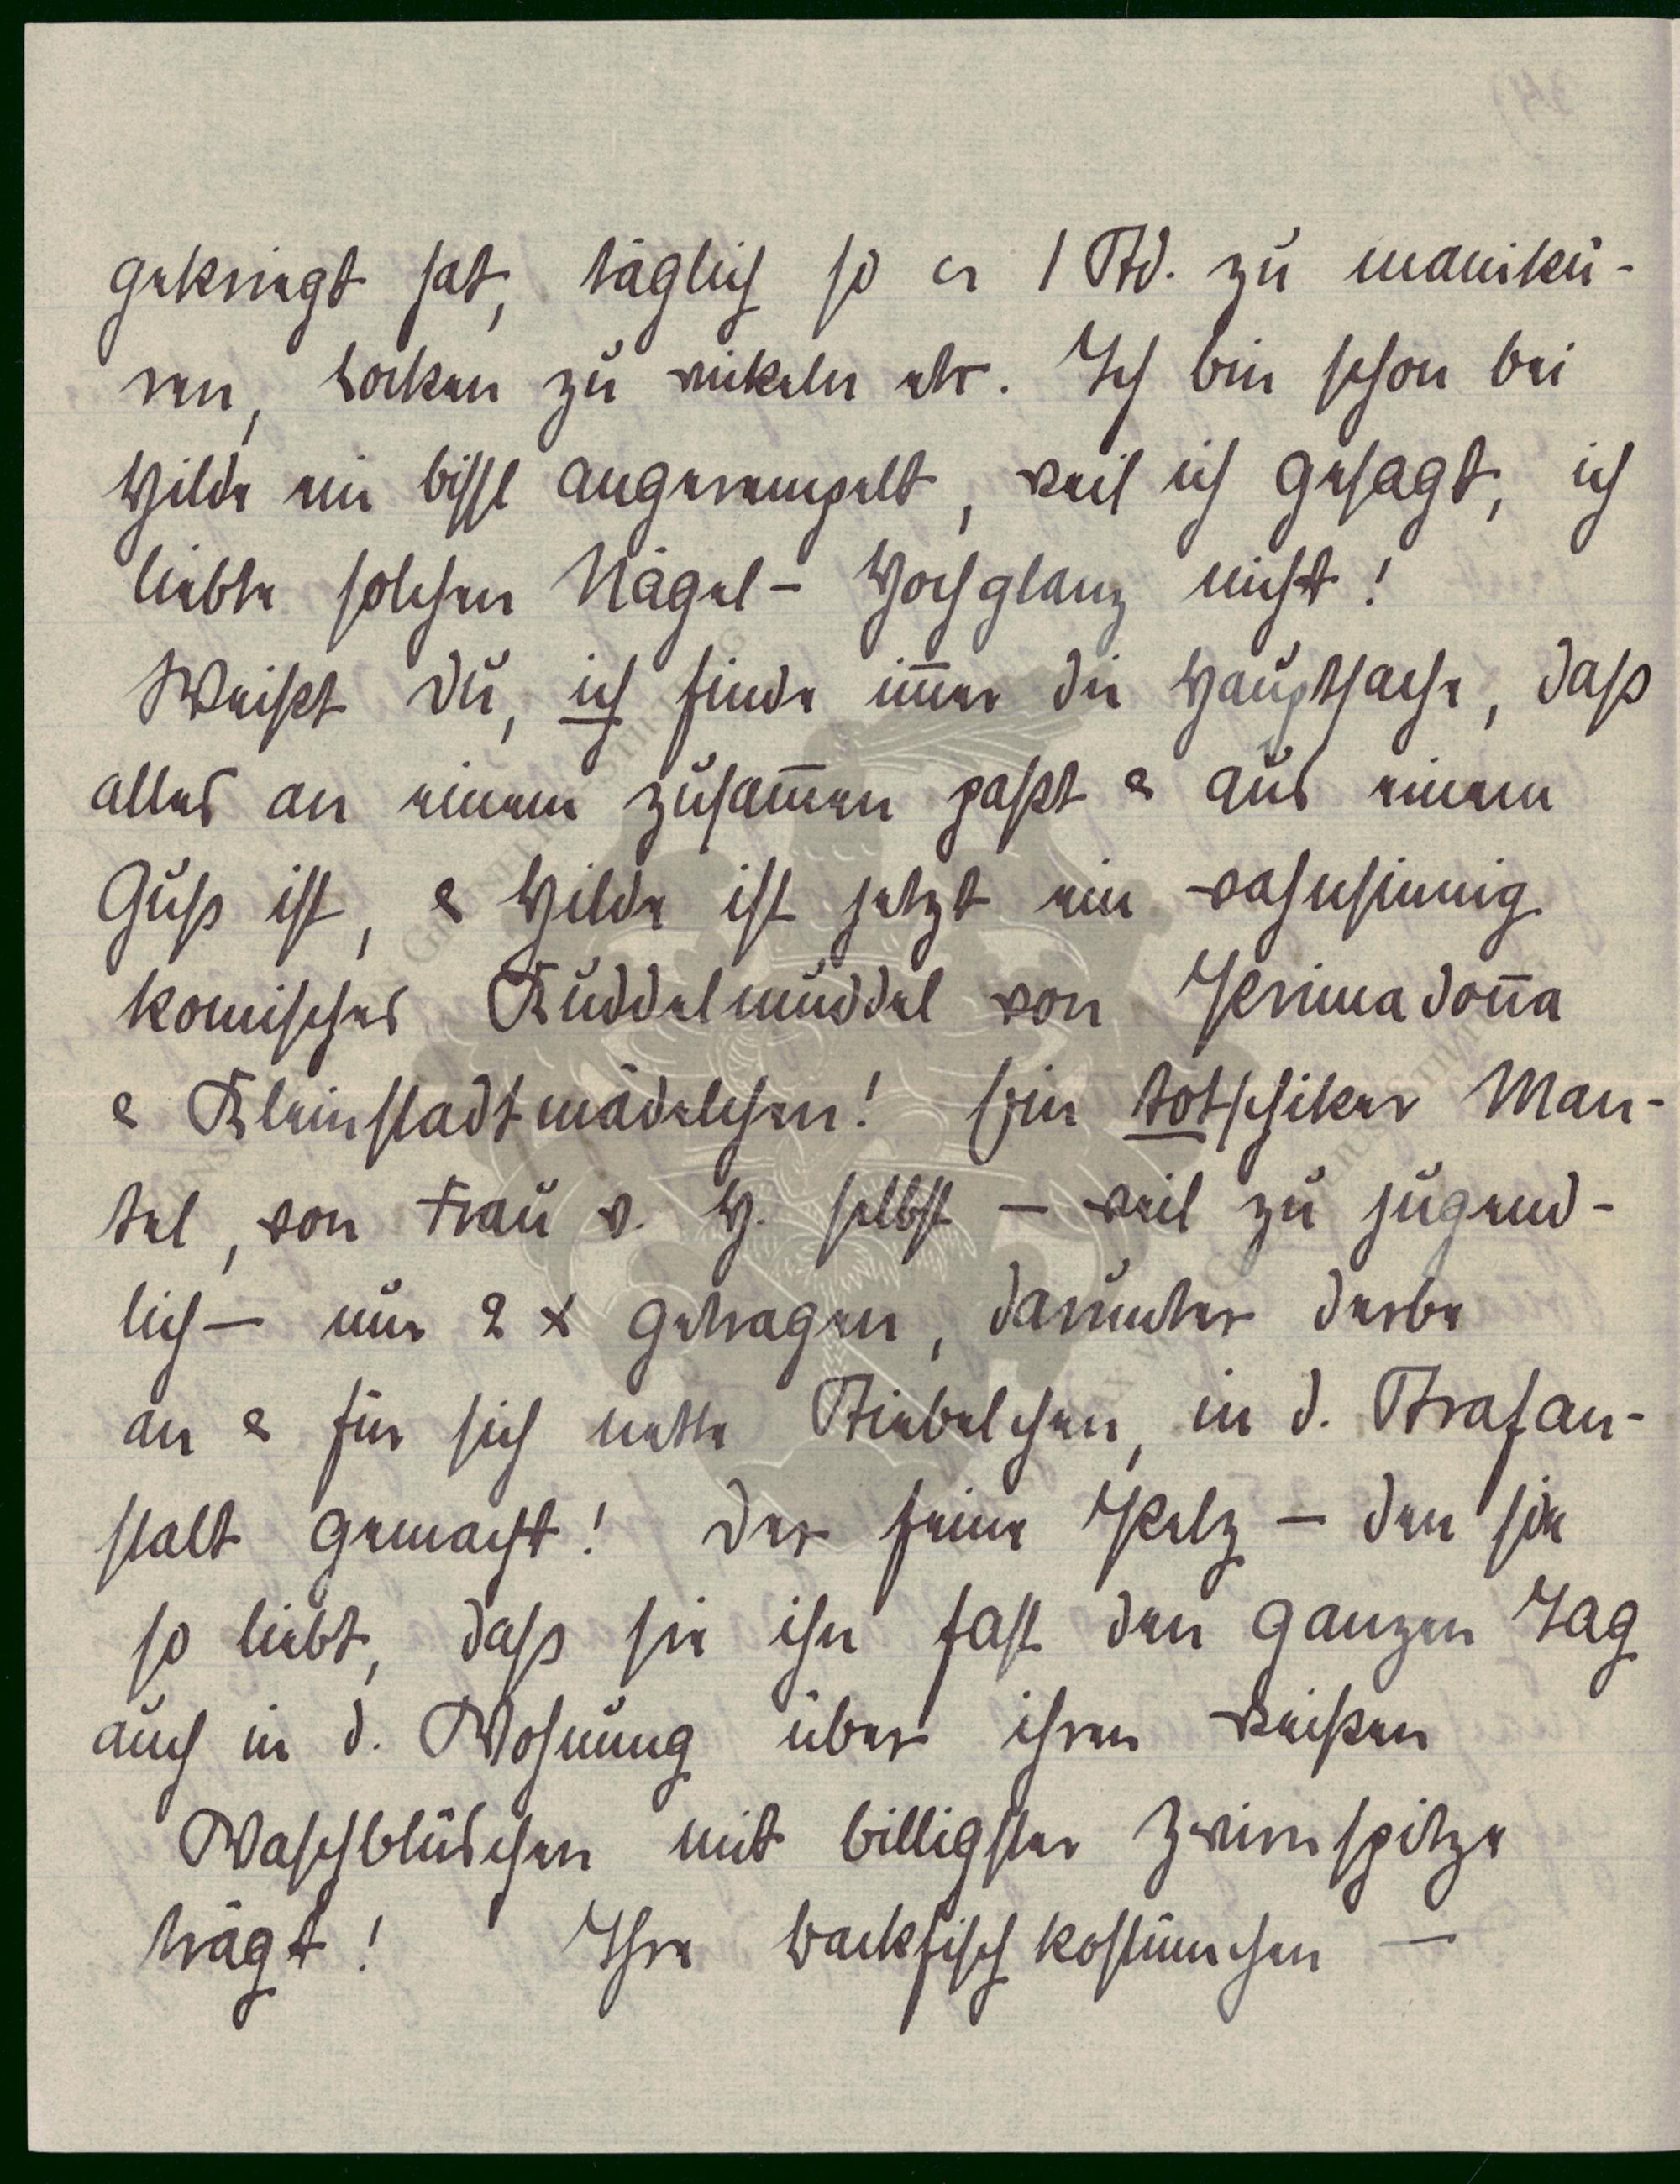 gekriegt hat, täglich so ca 1 Std. zu manikü-
ren, Locken zu wikeln etc. Ich bin schon bei
Hilde ein bissl angerempelt, weil ich gesagt, ich
liebte solchen Nägel- Hochglanz nicht!
Weißt Du, ich finde im̅er die Hauptsache, daß
alles an einem zusam̅en paßt & aus einem
Guß ist, & Hilde ist jetzt ein wahnsinnig
komisches Kuddelmuddel von Primadon̅a
& Kleinstadtmädelchen! Ein totschiker Man-
tel, von Frau v. H. selbst – weil zu jugend-
lich – nur 2 x getragen, darunter derbe
an & für sich nette Stiebelchen, in d. Strafan-
stalt gemacht! Der feine Pelz – den sie
so liebt, daß sie ihn fast den ganzen Tag
auch in d. Wohnung über ihren weißen
Waschblüschen mit billigster Zwirnspitze
trägt! Ihre Backfischkostümchen –